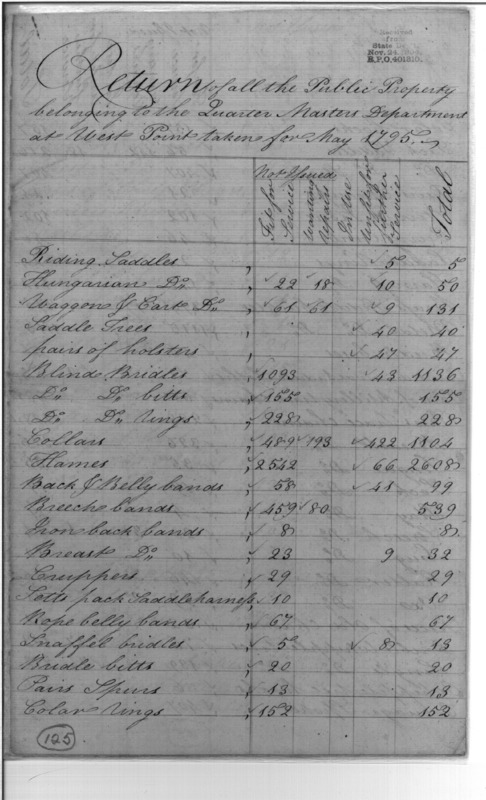 Received
from
State De
Nov. 24
R.P.O. 401310.
Return of all the Public Property
belonging to the Quarter Masters Department
at West Point taken for May 1795.
Not Issued
Fit for Service | wanting Repairs | In use | unfit for further Service | Total
Riding Saddles 5 5
Hungarian Do 22 18 10 50
Waggon & Cart Do 61 61 9 131
Saddle Trees 40 40
pairs of holsters 47 47
Blind Bridles 1093 43 1136
Do Do bitts 155 155
Do Do rings 228 228
Collars 489 193 422 1104
Hames 2542 66 2608
Back & Belly bands 58 41 99
Breech bands 459 80 539
Iron back bands 8 8
Breast Do 23 9 32
Cruppers 29 29
Setts pack Saddle harness 10 10
Rope belly bands 67 67
Snaffel bridles 5 8 13
Bridle bitts 20 20
Pairs Spurs 13 13
Colar rings 152 152
125